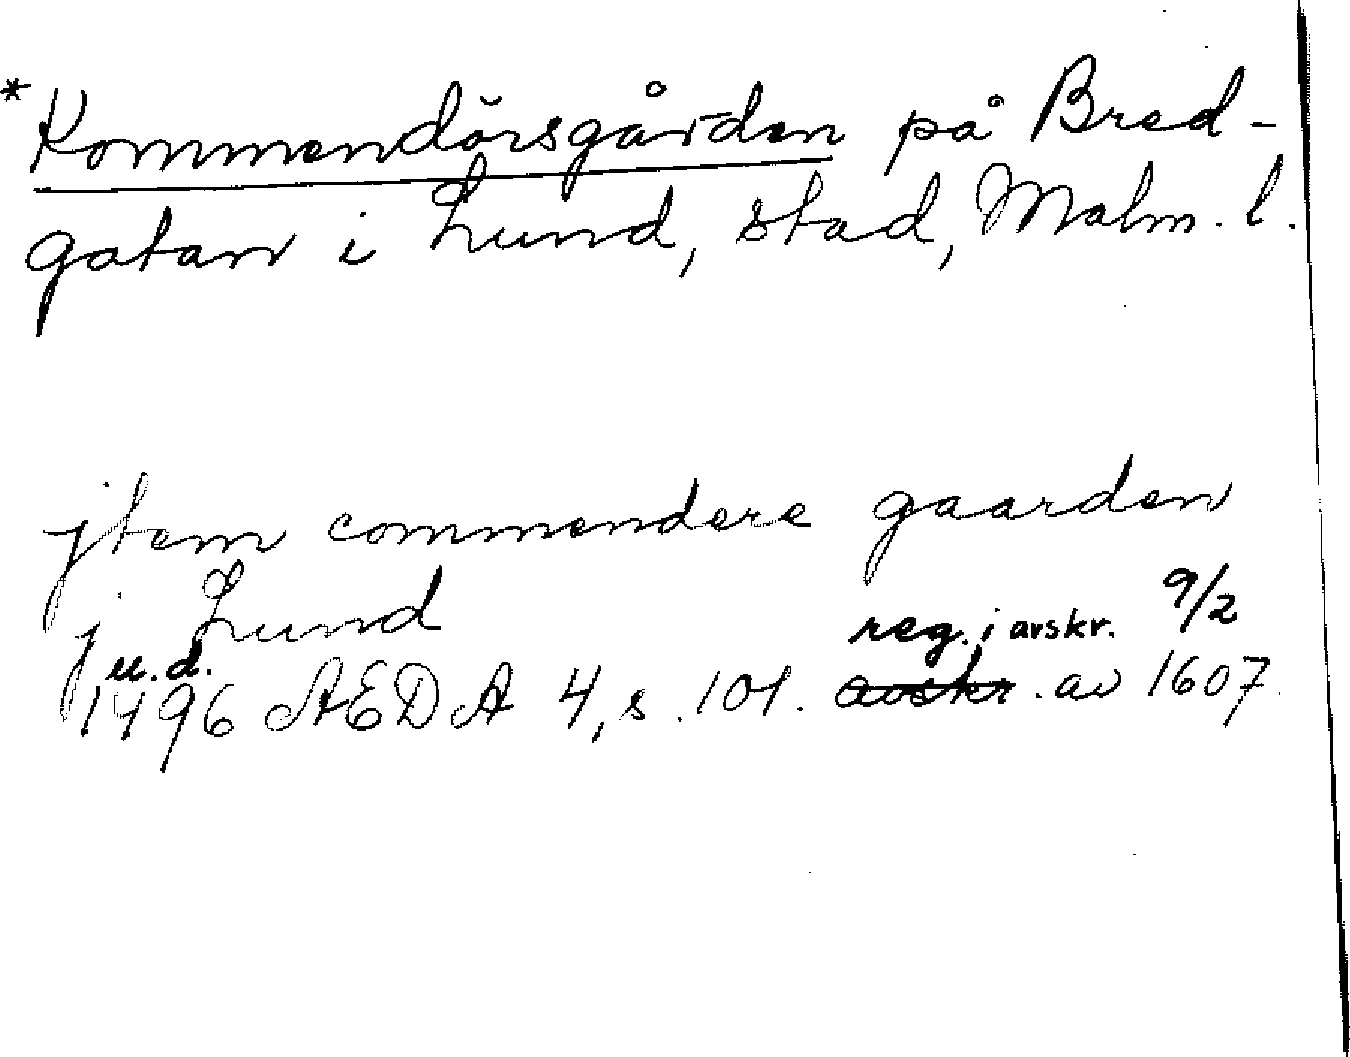 *Kommendörsgården på Bred-
gatan i Lund, stad, Malm. l.
jtem commendere gaarden
j Lund
u.d. reg. i avskr. 9/2
1496 AEDA 4, s. 101. avskr. av 1607.